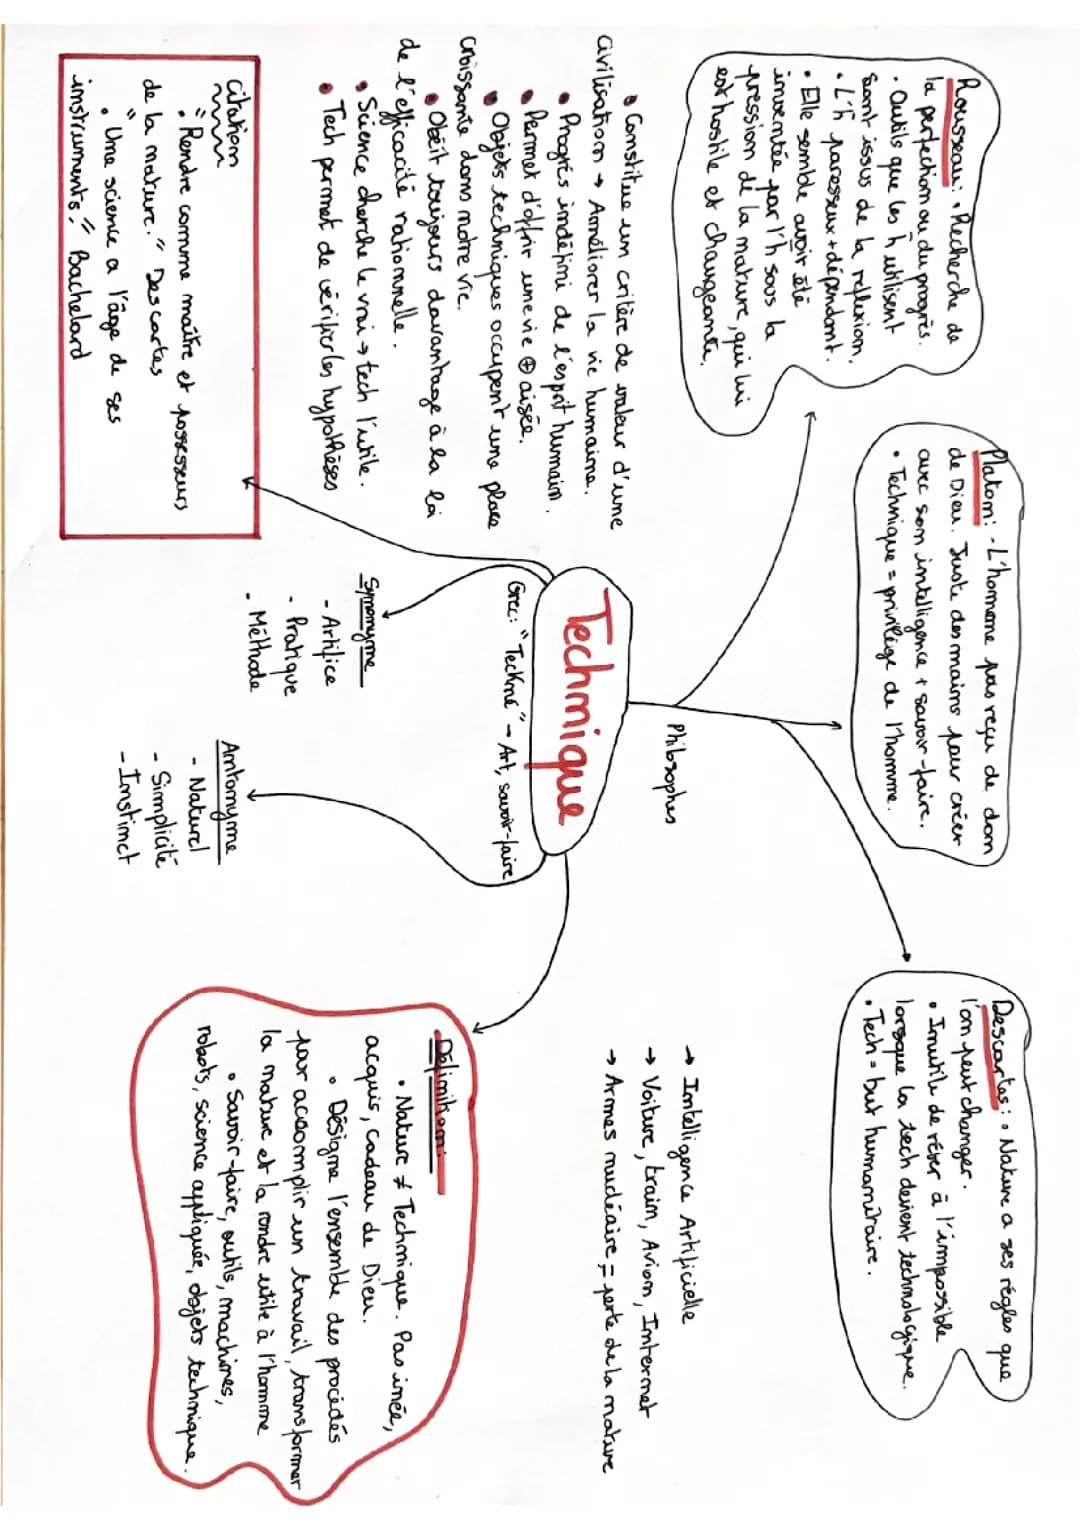 Rousseau: • Recherche de
la perfection ou du progrès.
• Outils que les h utilisent
sont issus de la réflexion.
• L'h paresseux + dépendant.
• Elle semble avoir été
inventée par l'h sous la
pression de la nature, qui lui
est hostile et changeante.
Platon: - L'homme pas reçu de don
de Dieu. Juste des mains pour créer
avec son intelligence + savoir-faire.
• Technique = privilège de l'homme.
Descartes: • Nature a ses règles que
l'on peut changer.
• Inutile de rêver à l'impossible
lorsque la tech devient technologique.
• Tech = but humanitaire.
Philosophes
• Constitue un critère de valeur d'une
civilisation → Améliorer la vie humaine.
• Progrès indéfini de l'esprit humain.
• Permet d'offrir une vie ⊕ aisée.
• Objets techniques occupent une place
croissante dans notre vie.
• Obéit toujours davantage à la loi
de l'efficacité rationnelle.
• Science cherche le vrai → tech l'utile.
• Tech permet de vérifier les hypothèses
Technique
Grec: "Teckné" - Art, savoir-faire
→ Intelligence Artificielle
→ Voiture, train, Avion, Internet
→ Armes nucléaire = perte de la nature
Citation
• "Rendre comme maître et possesseurs
de la nature." Descartes
• "Une science a l'âge de ses
instruments." Bachelard
Synonyme
- Artifice
- Pratique
- Méthode
Antonyme
- Naturel
- Simplicité
- Instinct
Définition:
• Nature ≠ Technique. Pas innée,
acquis, cadeau de Dieu.
• Désigne l'ensemble des procédés
pour accomplir un travail, transformer
la nature et la rendre utile à l'homme
• Savoir-faire, outils, machines,
robots, science appliquée, objets technique.